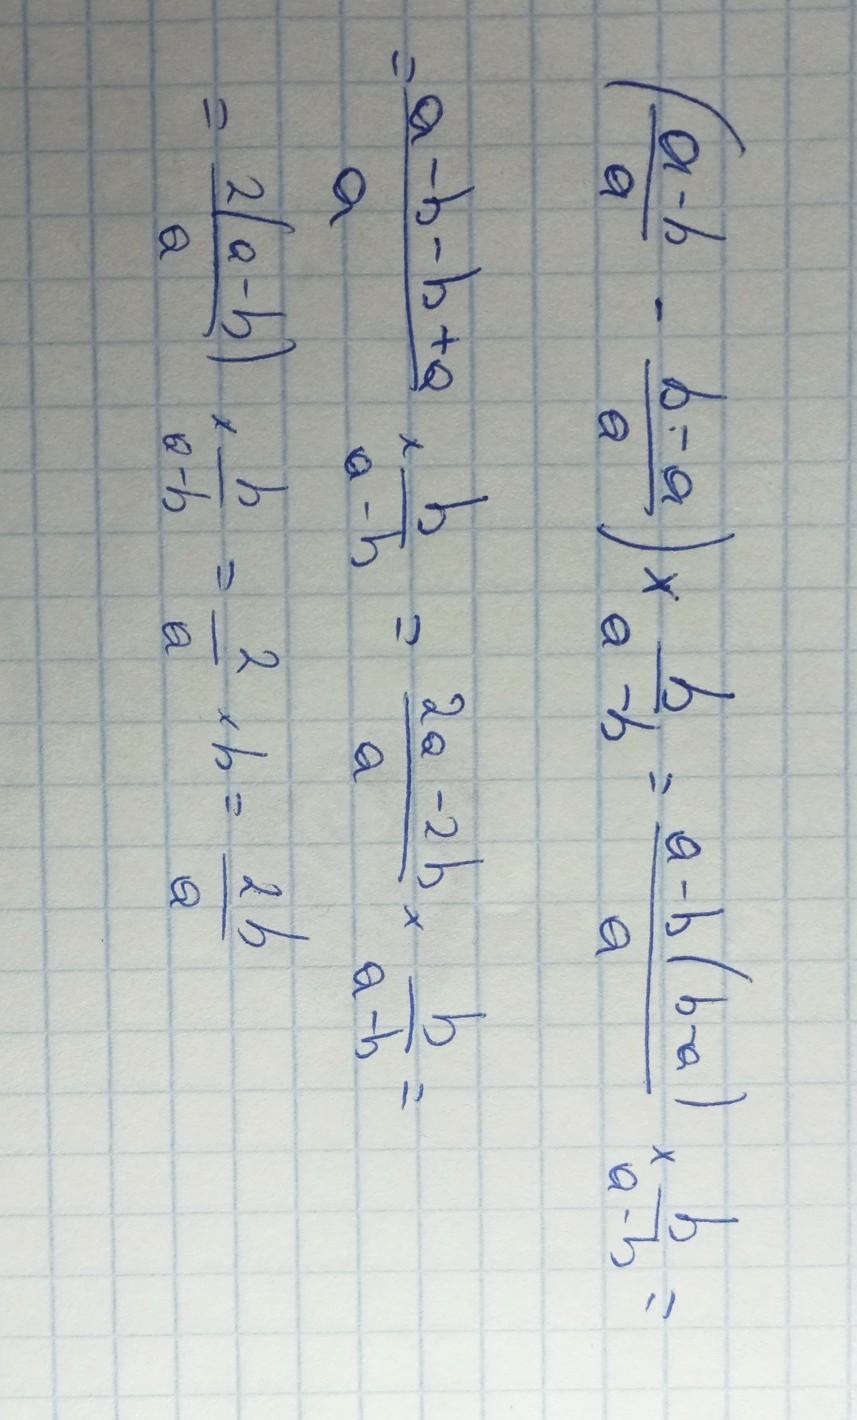 (a-b/a - b-a/a) × b/a-b = a-b(b-a)/a × b/a-b =
= a-b-b+a/a × b/a-b = 2a-2b/a × b/a-b =
= 2(a-b)/a × b/a-b = 2/a × b = 2b/a